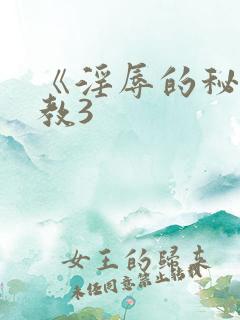 《淫辱的秘
教3
女王的歸來
未经同意禁止转载